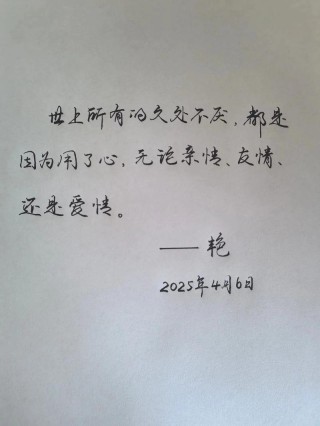 世上所有的久处不厌，都是
因为用了心，无论亲情、友情、
还是爱情。
——艳
2025年4月6日